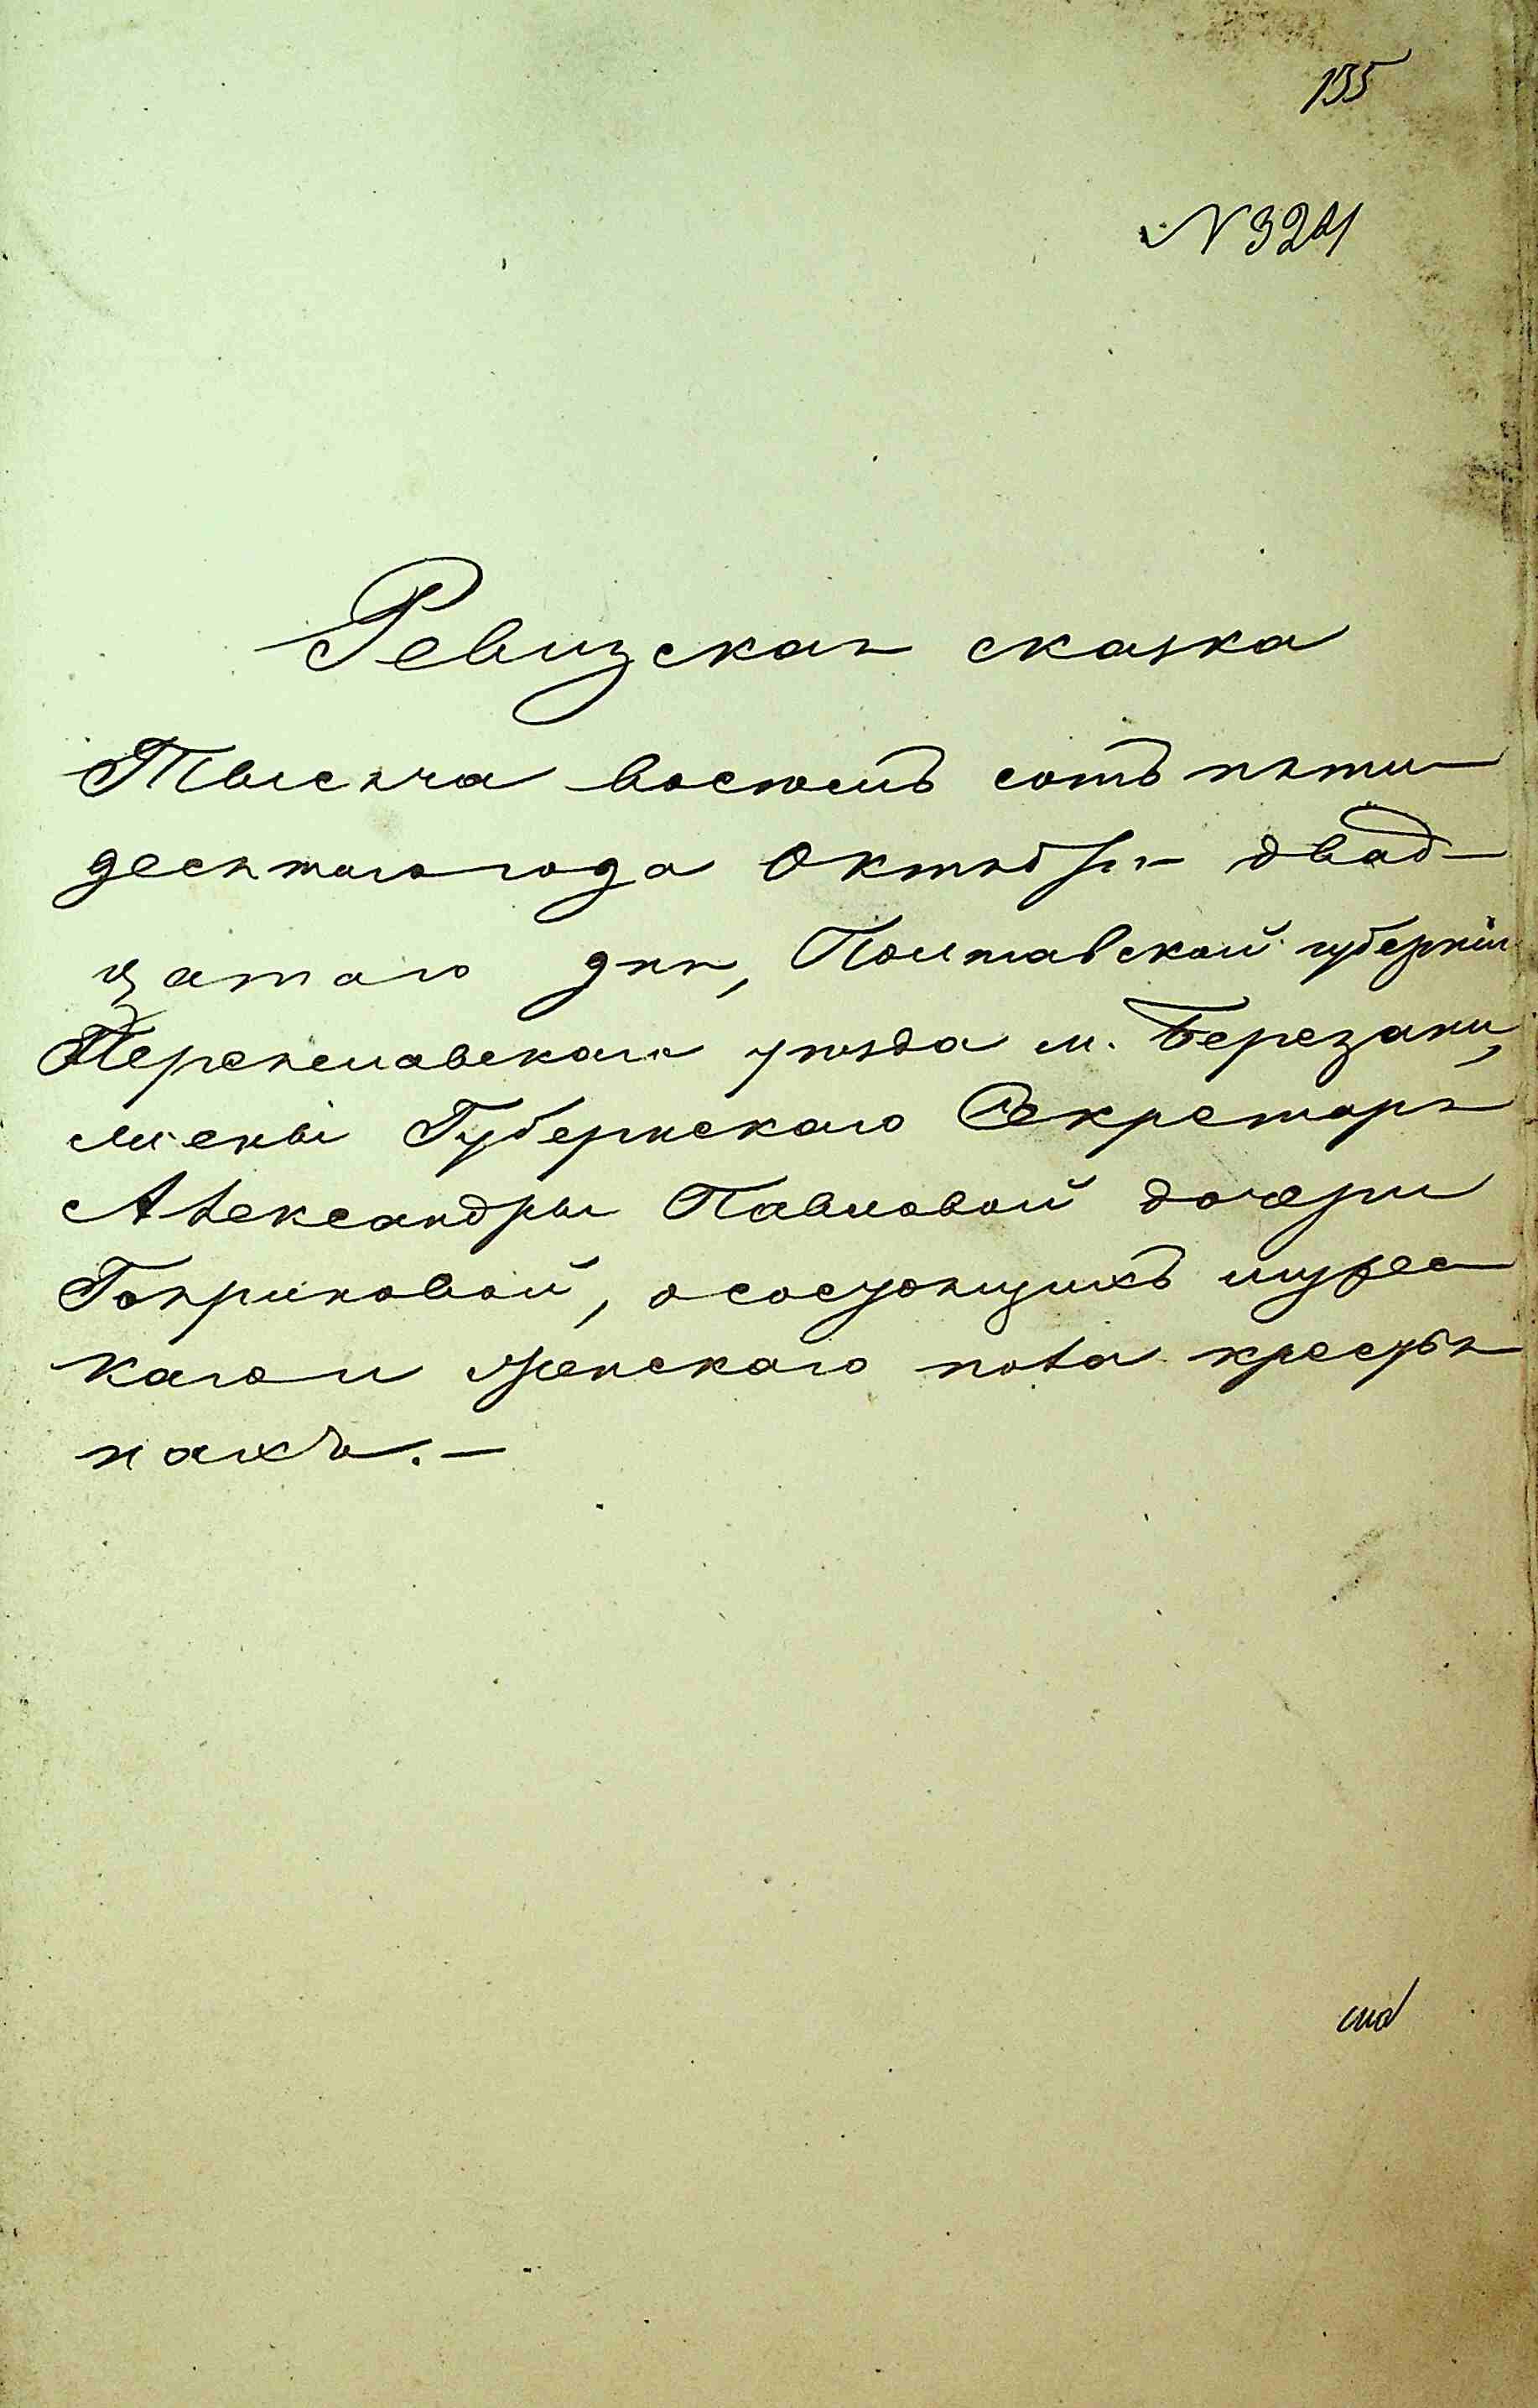 155
№ 324
Ревизская сказка
Тысяча восемь сотъ пяти
десятого года Октября двад-
цатого дня, Полтавской губерніи
Переяславскаго уѣзда м. Березани,
жены Губернскаго Секретаря
Александры Павловой дочери
о состоящихъ мужес
каго и женскаго пола крестья
нахъ.-